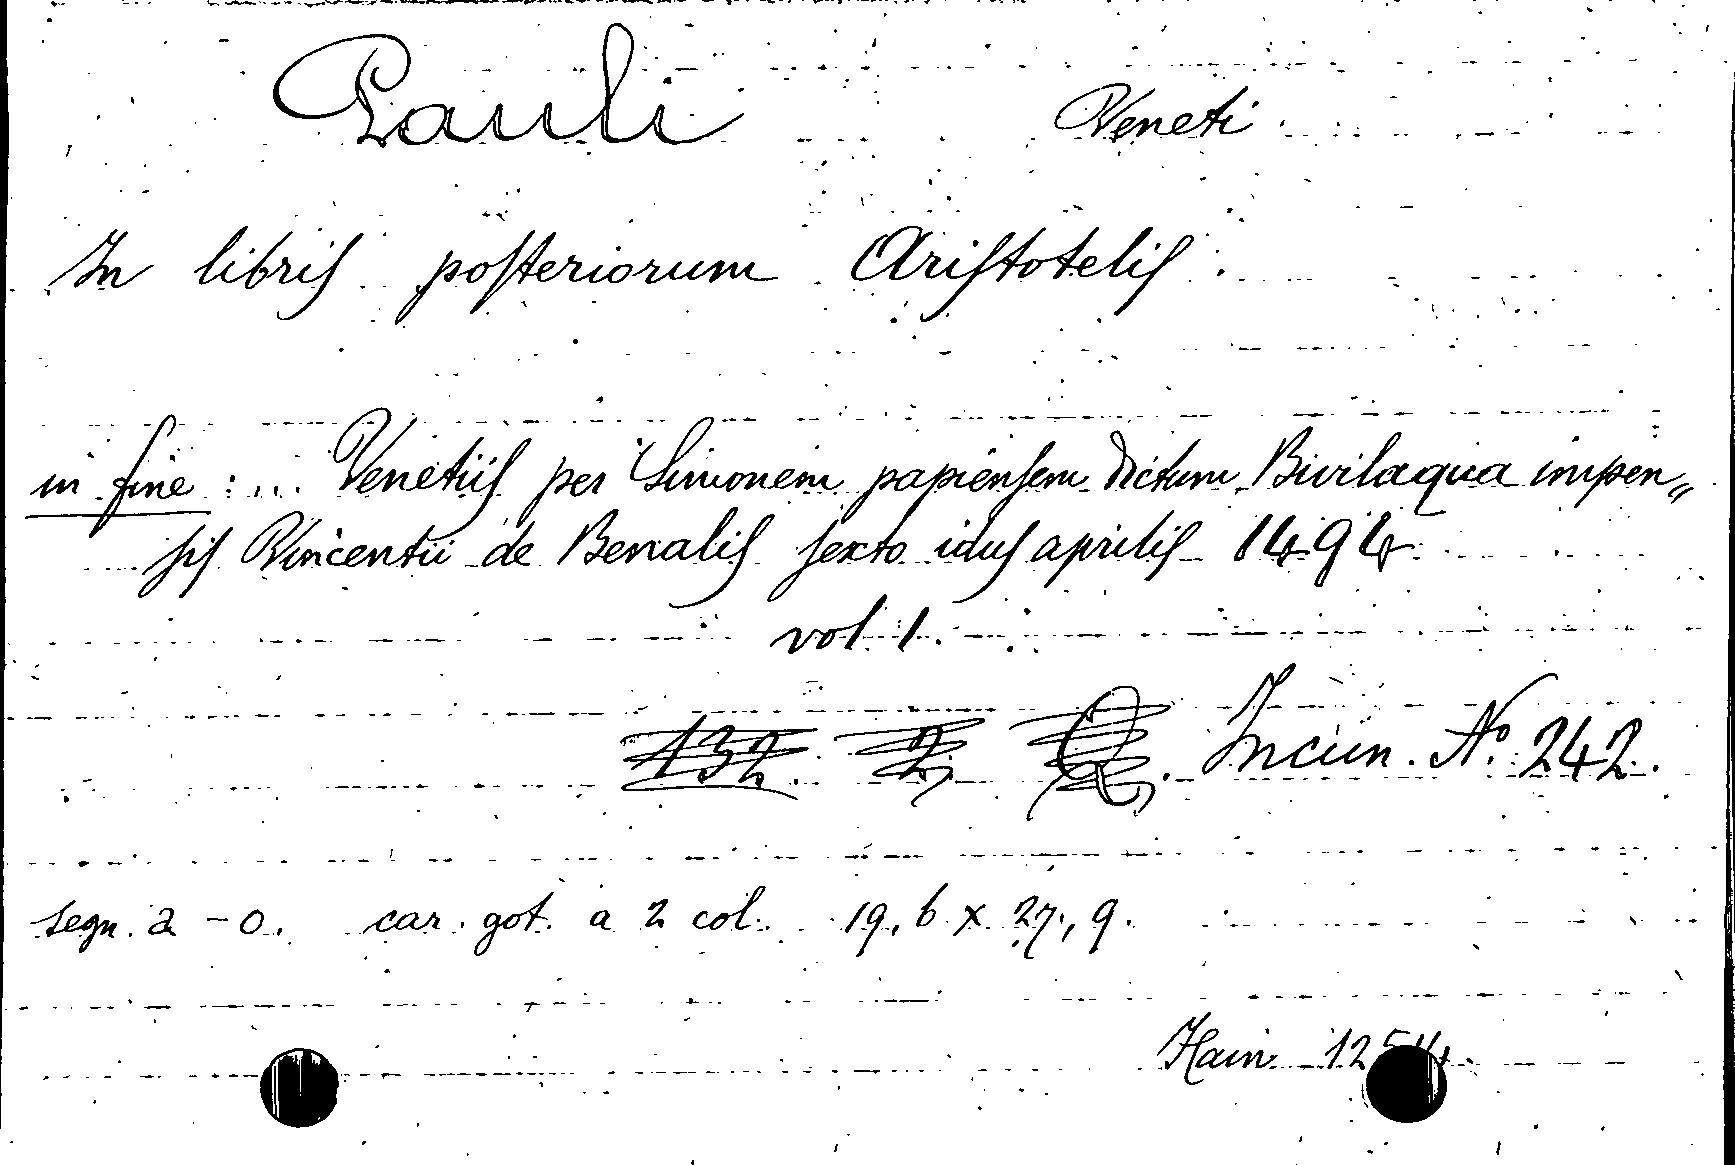 Pauli Veneti
In libris posteriorum Aristotelis.
in fine: ... Venetiis per Simonem papiensem dictum Bivilaqua impen„
sis Vincentii de Benalis sexto idus aprilis 1494
vol. 1.
132 2 Q. Incun. Nº 242.
segn. a - o. car. got. a 2 col. 19,6 x 27,9.
Hain